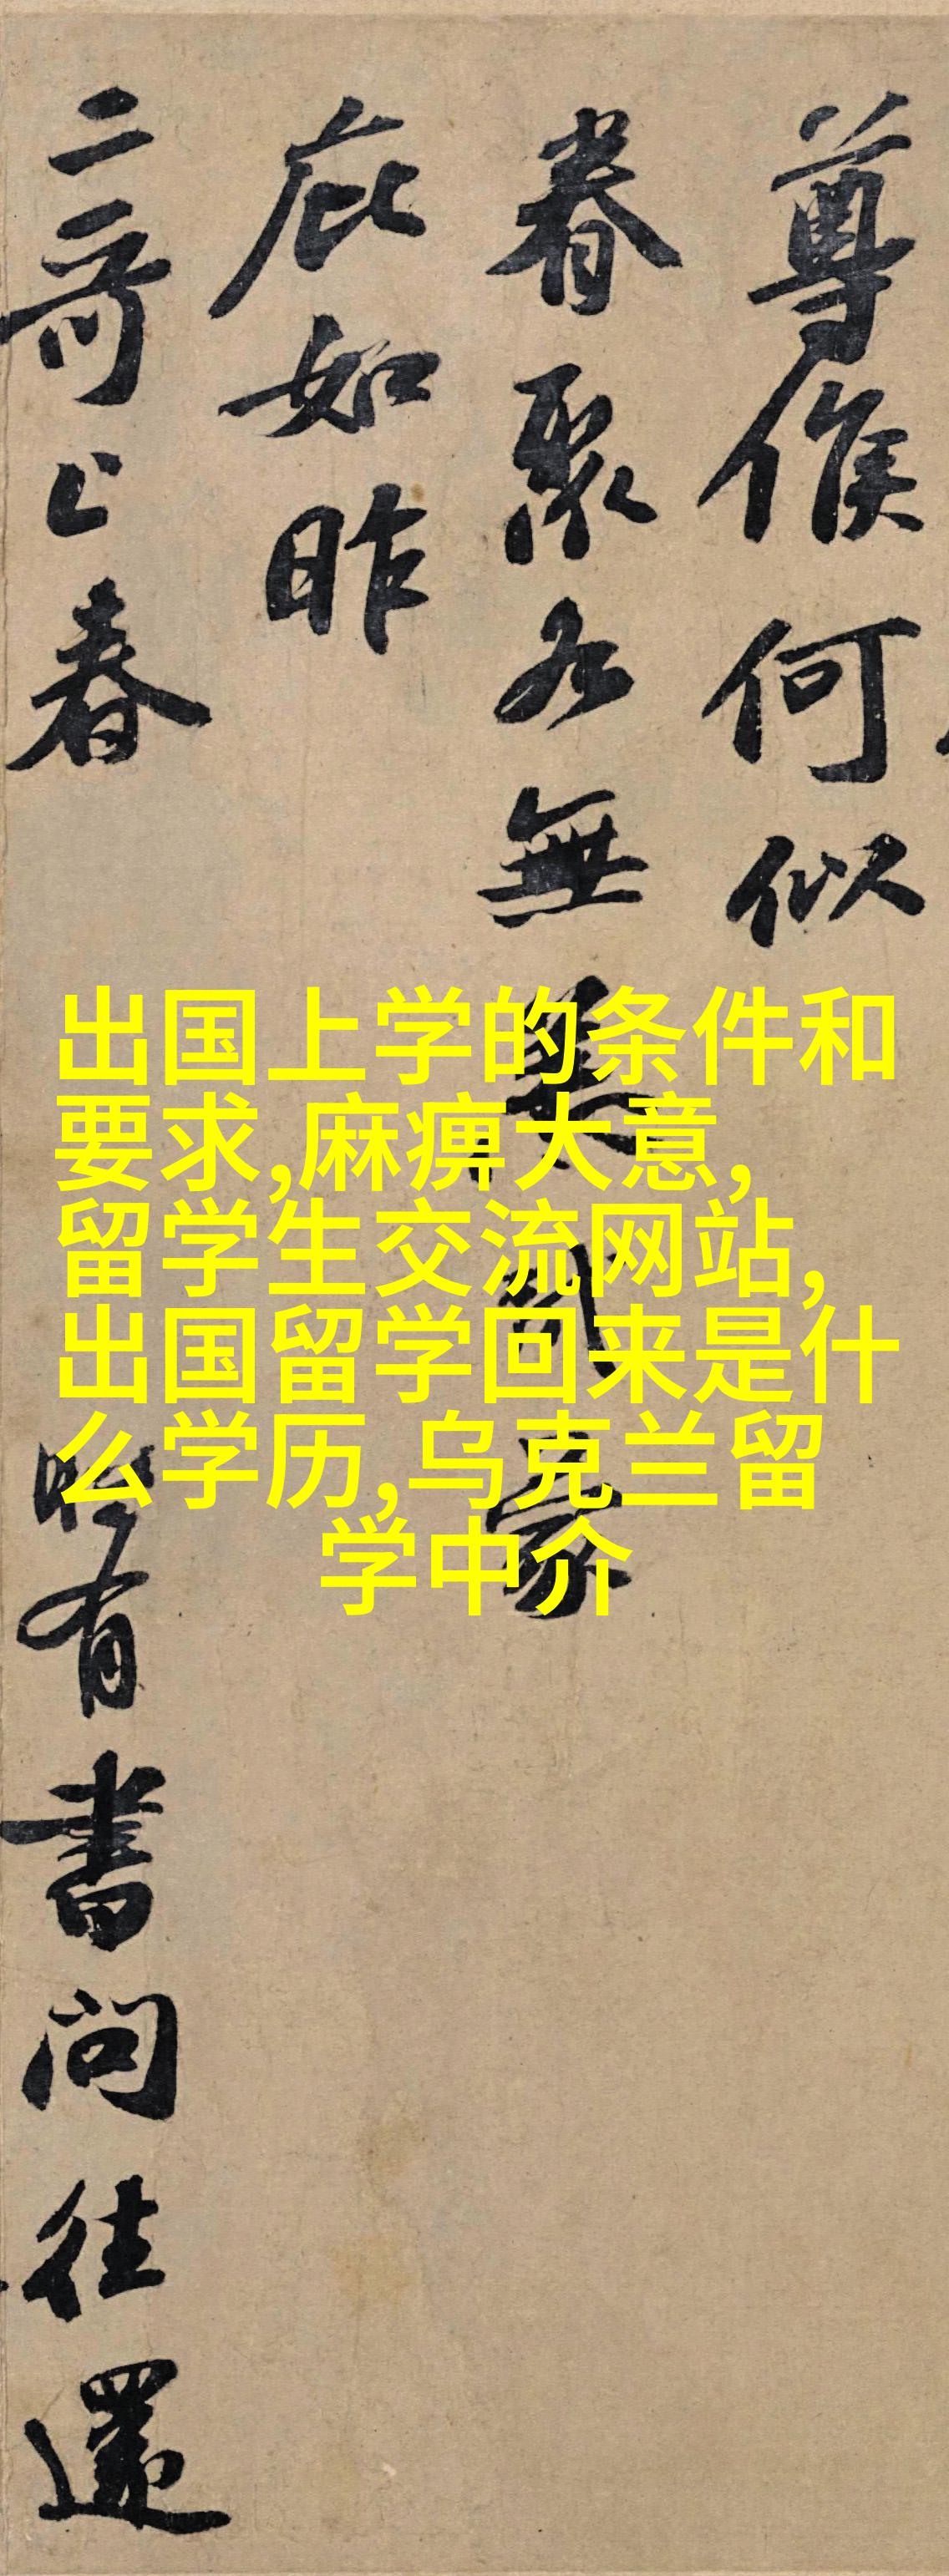 尊候何似
眷聚各無恙哉蒙
庇如昨
二哥上春
有書問往還
出国上学的条件和
要求,麻痹大意,
留学生交流网站,
出国留学回来是什
么学历,乌克兰留
学中介